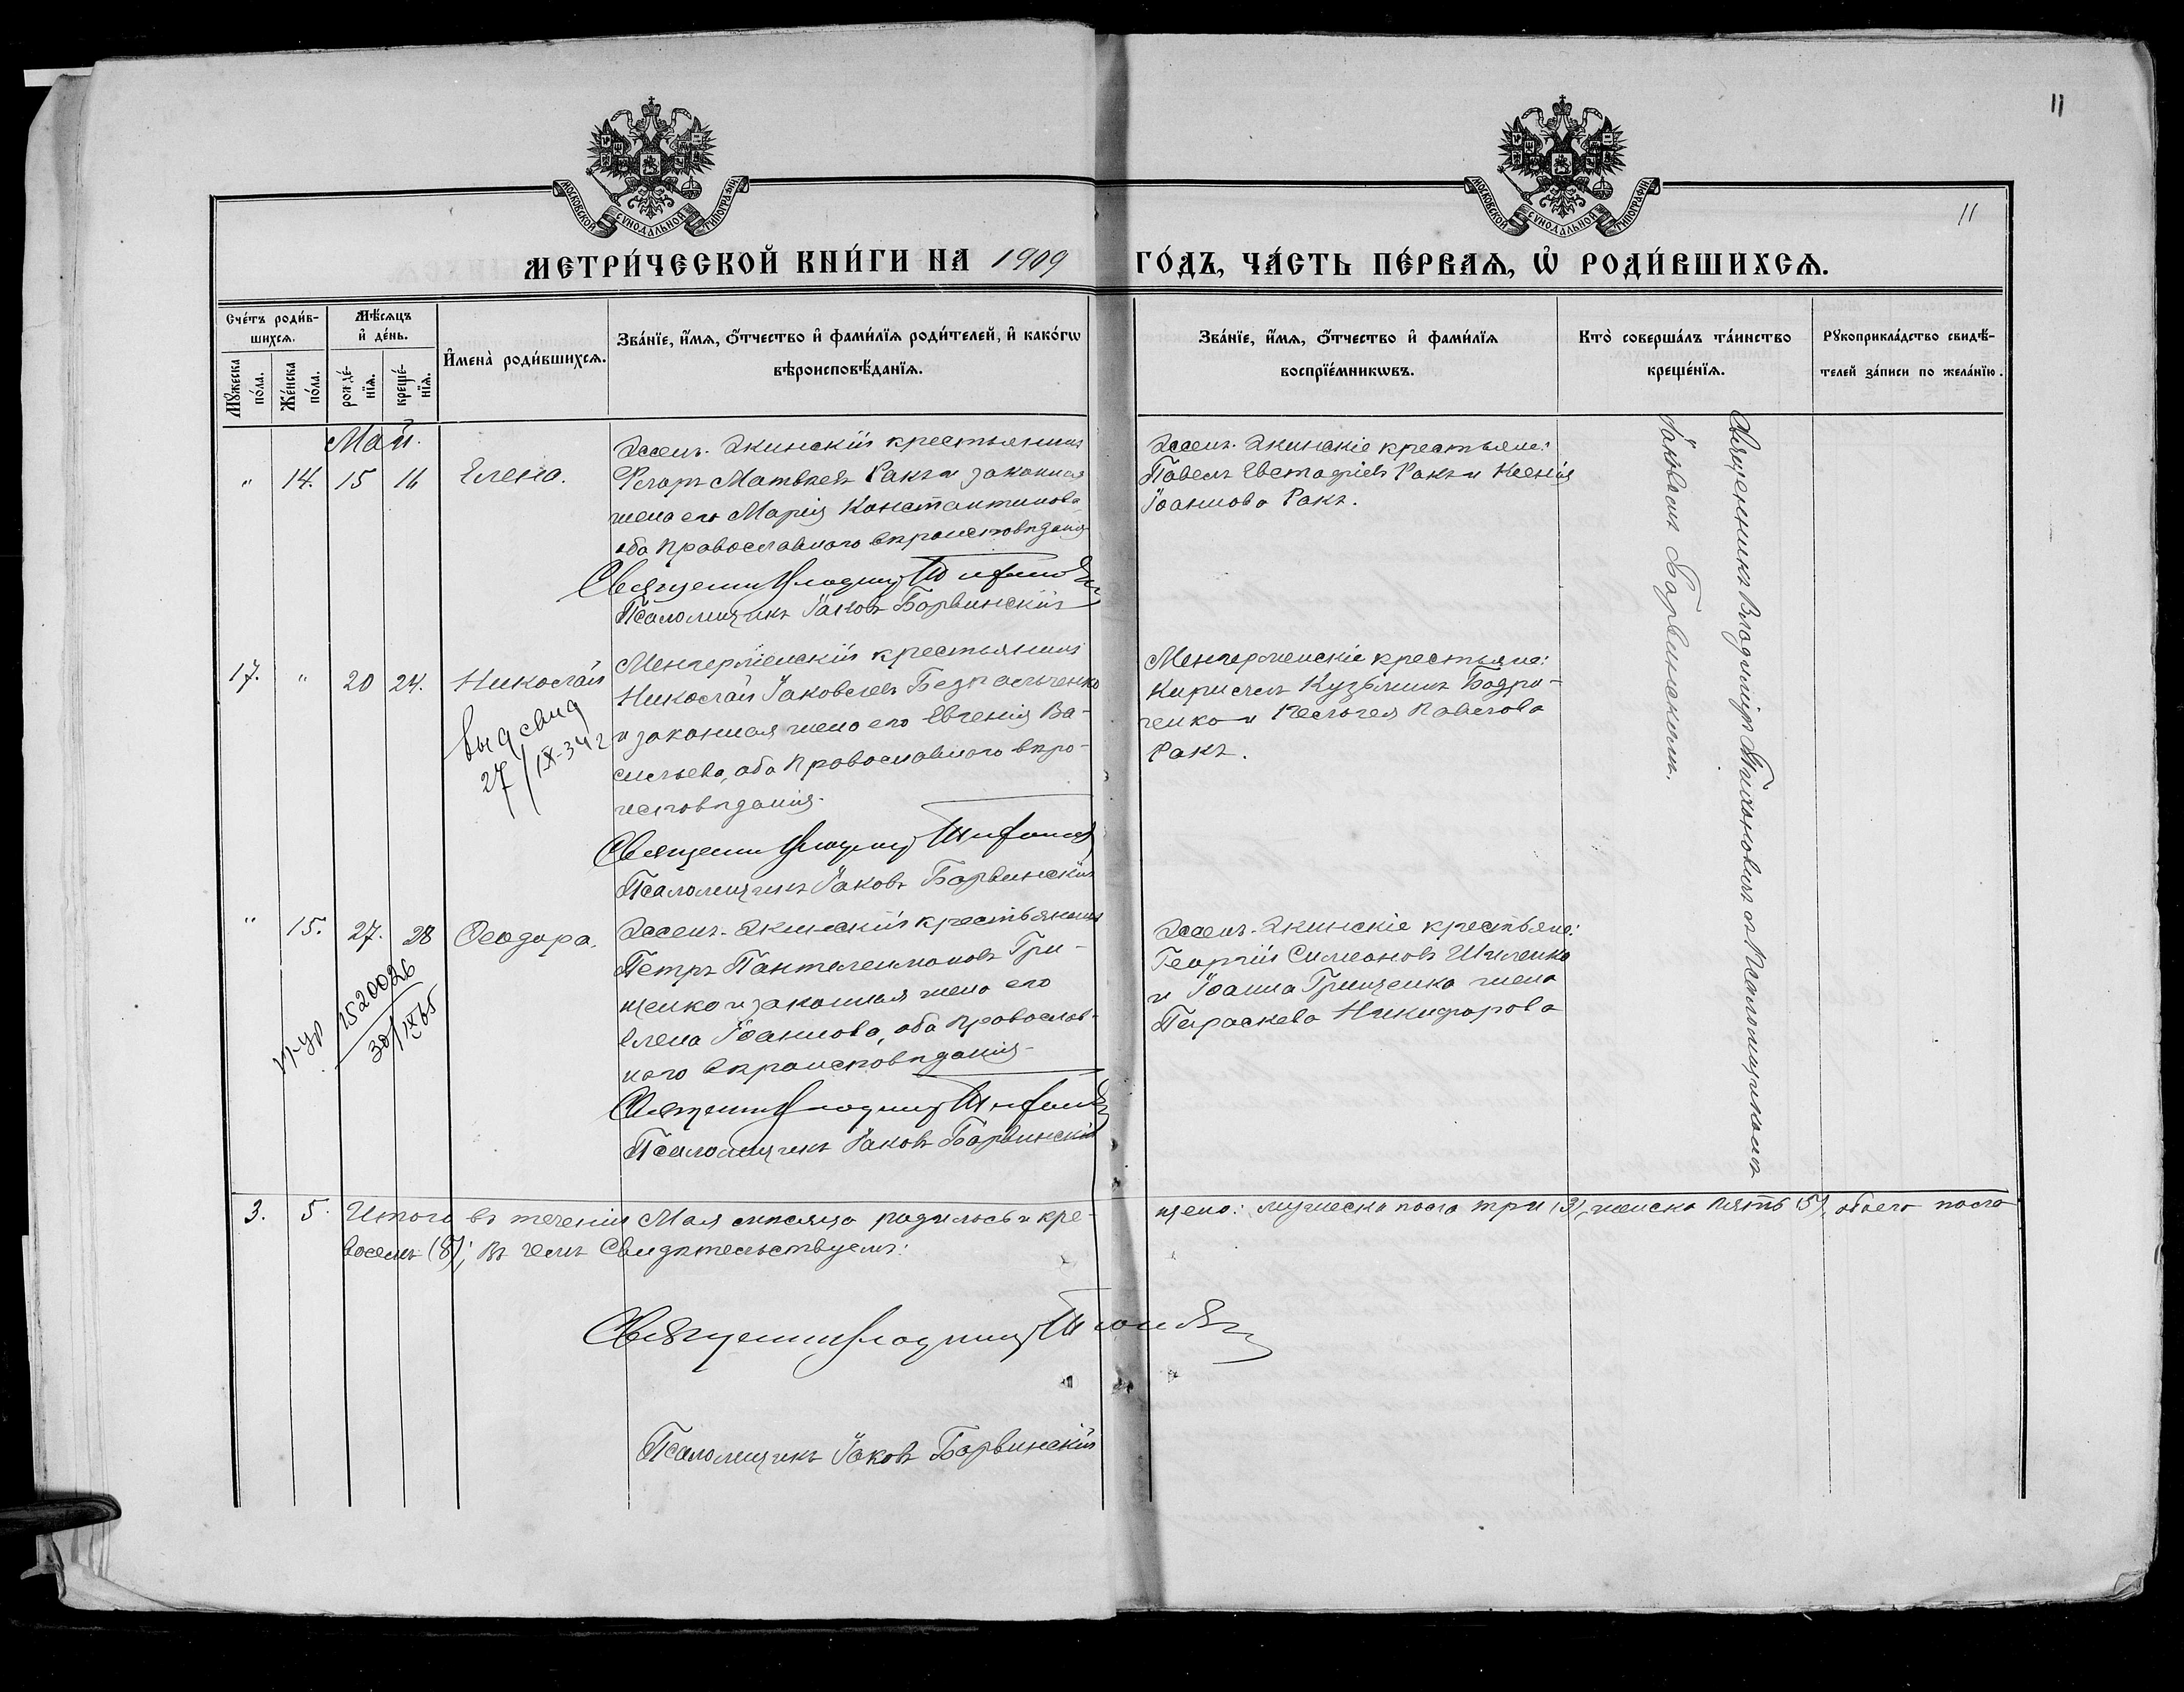 11
11
МОСКОВСКОЙ СѴНОДАЛЬНОЙ ТИПОГРАФІИ
МОСКОВСКОЙ СѴНОДАЛЬНОЙ ТИПОГРАФІИ
МЕТРИ́ЧЕСКОЙ КНИ́ГИ НА 1909 ГО́ДЪ, ЧА́СТЬ ПЕ́РВАѦ, Ѽ РОДИ́ВШИХСѦ.
Сче́тъ роди́в-
шихсѧ.
Мꙋ́жеска по́ла.
Же́нска по́ла.
Мѣ́сѧцъ
и҆ де́нь.
рожде́-
нїѧ.
креще́-
нїѧ.
И҆мена̀ роди́вшихсѧ.
Зва́нїе, и҆́мѧ, ѻ҆́тчество и҆ фами́лїѧ роди́телей, и҆ како́гѡ
вѣроисповѣ́данїѧ.
Зва́нїе, и҆́мѧ, ѻ҆́тчество и҆ фами́лїѧ
воспрїе́мникѡвъ.
Кто̀ соверша́лъ та́инство
креще́нїѧ.
Рꙋкоприкла́дство свидѣ́-
телей за́писи по жела́нїю.
Май.
" 14. 15 16 Елена.
Экинскій крестьянинъ
Матвѣевъ Ракъ и законная
жена его Марія Константинова,
оба православного вѣроисповѣданія
Священникъ Владиміръ
Псаломщикъ Іаковъ Борвинскій
Экинскіе крестьяне:
Павелъ Евстафіевъ Ракъ и Ксенія
Іоаннова Ракъ.
Священникъ Владиміръ Тихановичъ съ Псаломщикомъ
Іаковомъ Борвинскимъ.
17. " 20 24. Николай
выд свид
27/IX-34 г
крестьянинъ
Николай Іаковлевъ Безпальченко
и законная жена его Евгенія Ва-
сильева, оба православного вѣро-
исповѣданія.
Священникъ Владиміръ
Псаломщикъ Іаковъ Борвинскій
крестьяне:
Кириллъ Кузьминъ Бодра-
ченко и Пелагея Павлова
Ракъ.
" 15. 27. 28 Ѳеодора.
1520026
30/IX 65
Экинскій крестьянинъ
Петръ Пантелеимоновъ Гри-
щенко и законная жена его
Елена Іоаннова, оба православ-
ного вѣроисповѣданія
Священникъ Владиміръ
Псаломщикъ Іаковъ Борвинскій
Экинскіе крестьяне:
Георгій Симеоновъ Шиленко
и Іоанна Грищенка жена
Параскева Никифорова
3. 5. Итого въ теченіи Мая мѣсяца родилось и кре-
щено: мужеска пола три (3), женска пять (5), обоего пола
восемь (8); въ чемъ Свидѣтельствуемъ:
Священникъ Владиміръ
Псаломщикъ Іаковъ Борвинскій